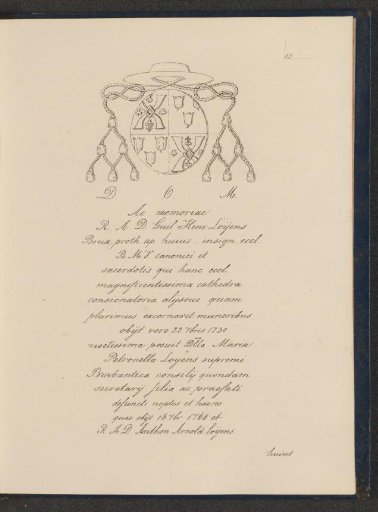 D. O. M.
Ac memoriae
R. A. D. Guil Henr Loijens
Brux proth ap. huius insign eccl.
B. M. V. canonici et
sacerdotis qui hanc eccl.
magnificentissima cathedra
concionatoria aliisque quam
plurimus exornavit muneribus
obijt vero 22 7bris 1730
moestissima posuit D͞lla Maria
Petronella Loijens supremi
Brabantica consilij quondam
secretarij filia ac praefati
defuncti neptis et haeres
quae obijt 15 7br 1768 et
R. A. D. Anthon Arnold Loijens
huius